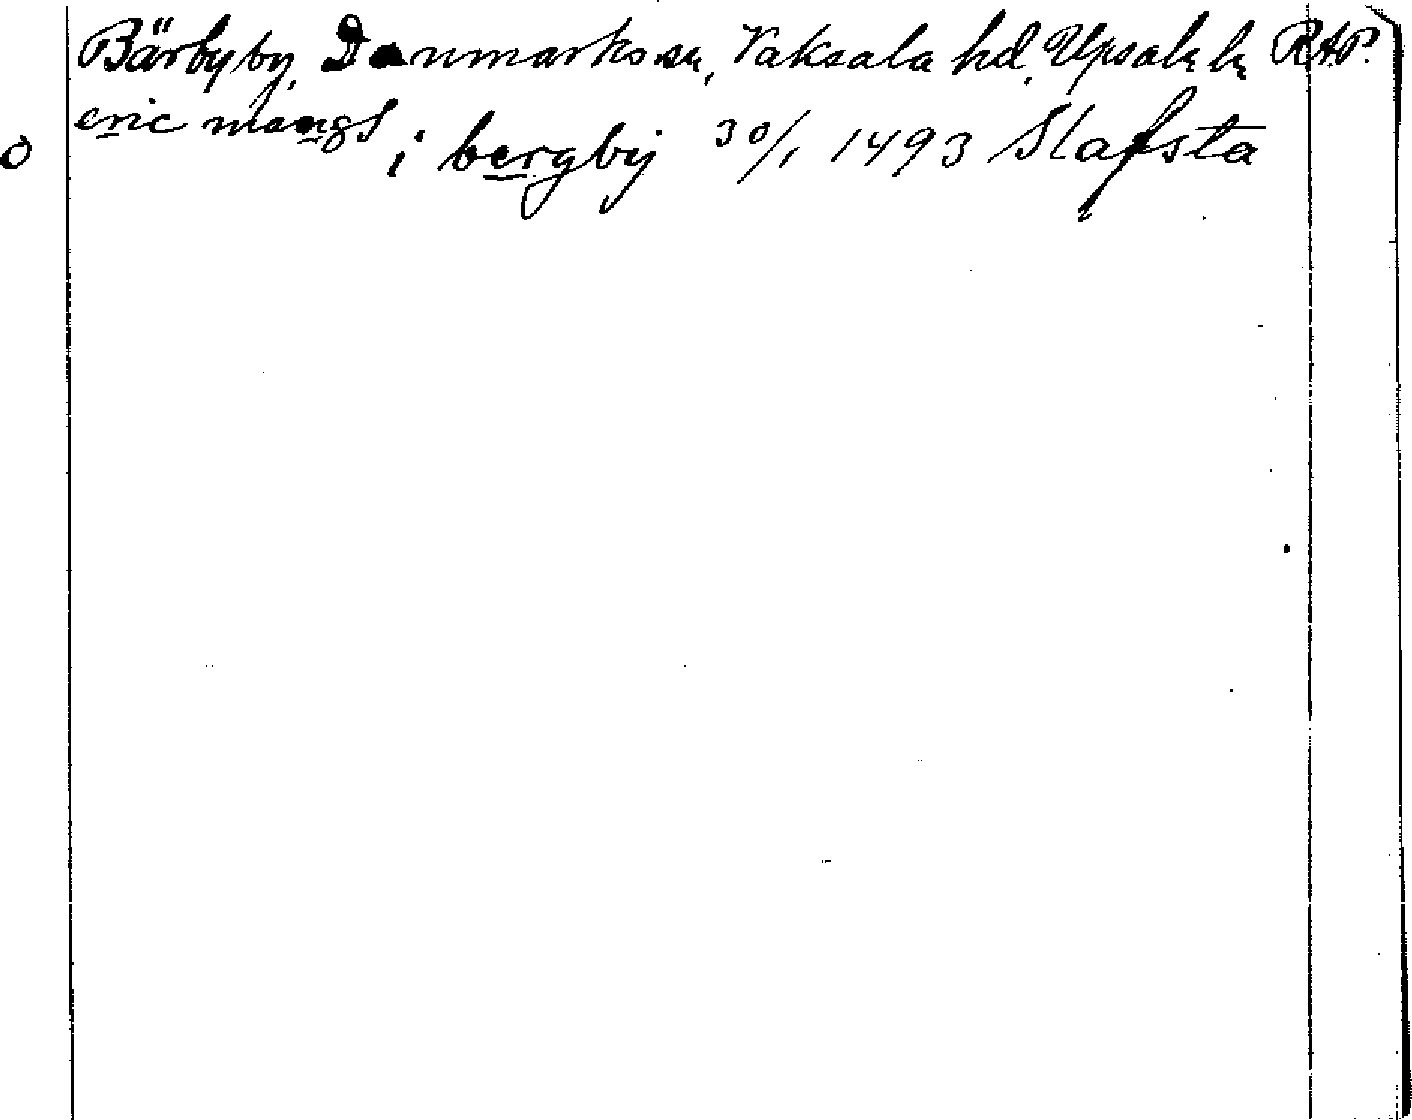 Bärby by, Danmarks sn, Vaksala hd, Upsala ln RAP.
eric mangs i bergby 30/1 1493 Slafsta
o